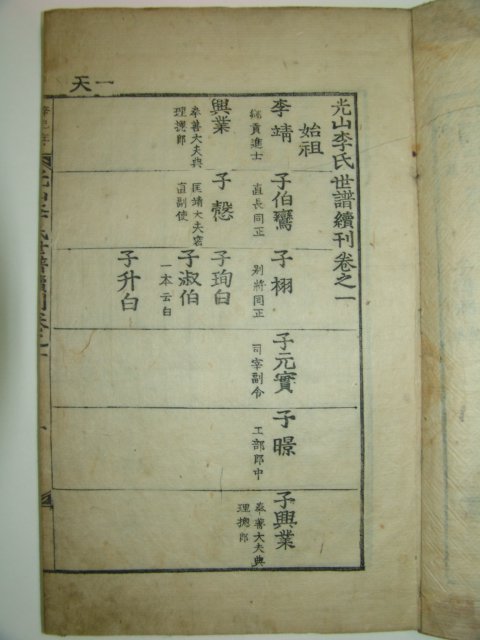 天一
光山李氏世譜續刊卷之一
始祖
李靖
鄕貢進士
子伯鸞
直長同正
子栩
別將同正
子元實
司宰副令
子暻
工部郎中
子興業
奉善大夫典
理摠郎
興業
奉善大夫典
理摠郎
子慤
匡靖大夫密
直副使
子珣白
子淑伯
一本云白
子升白